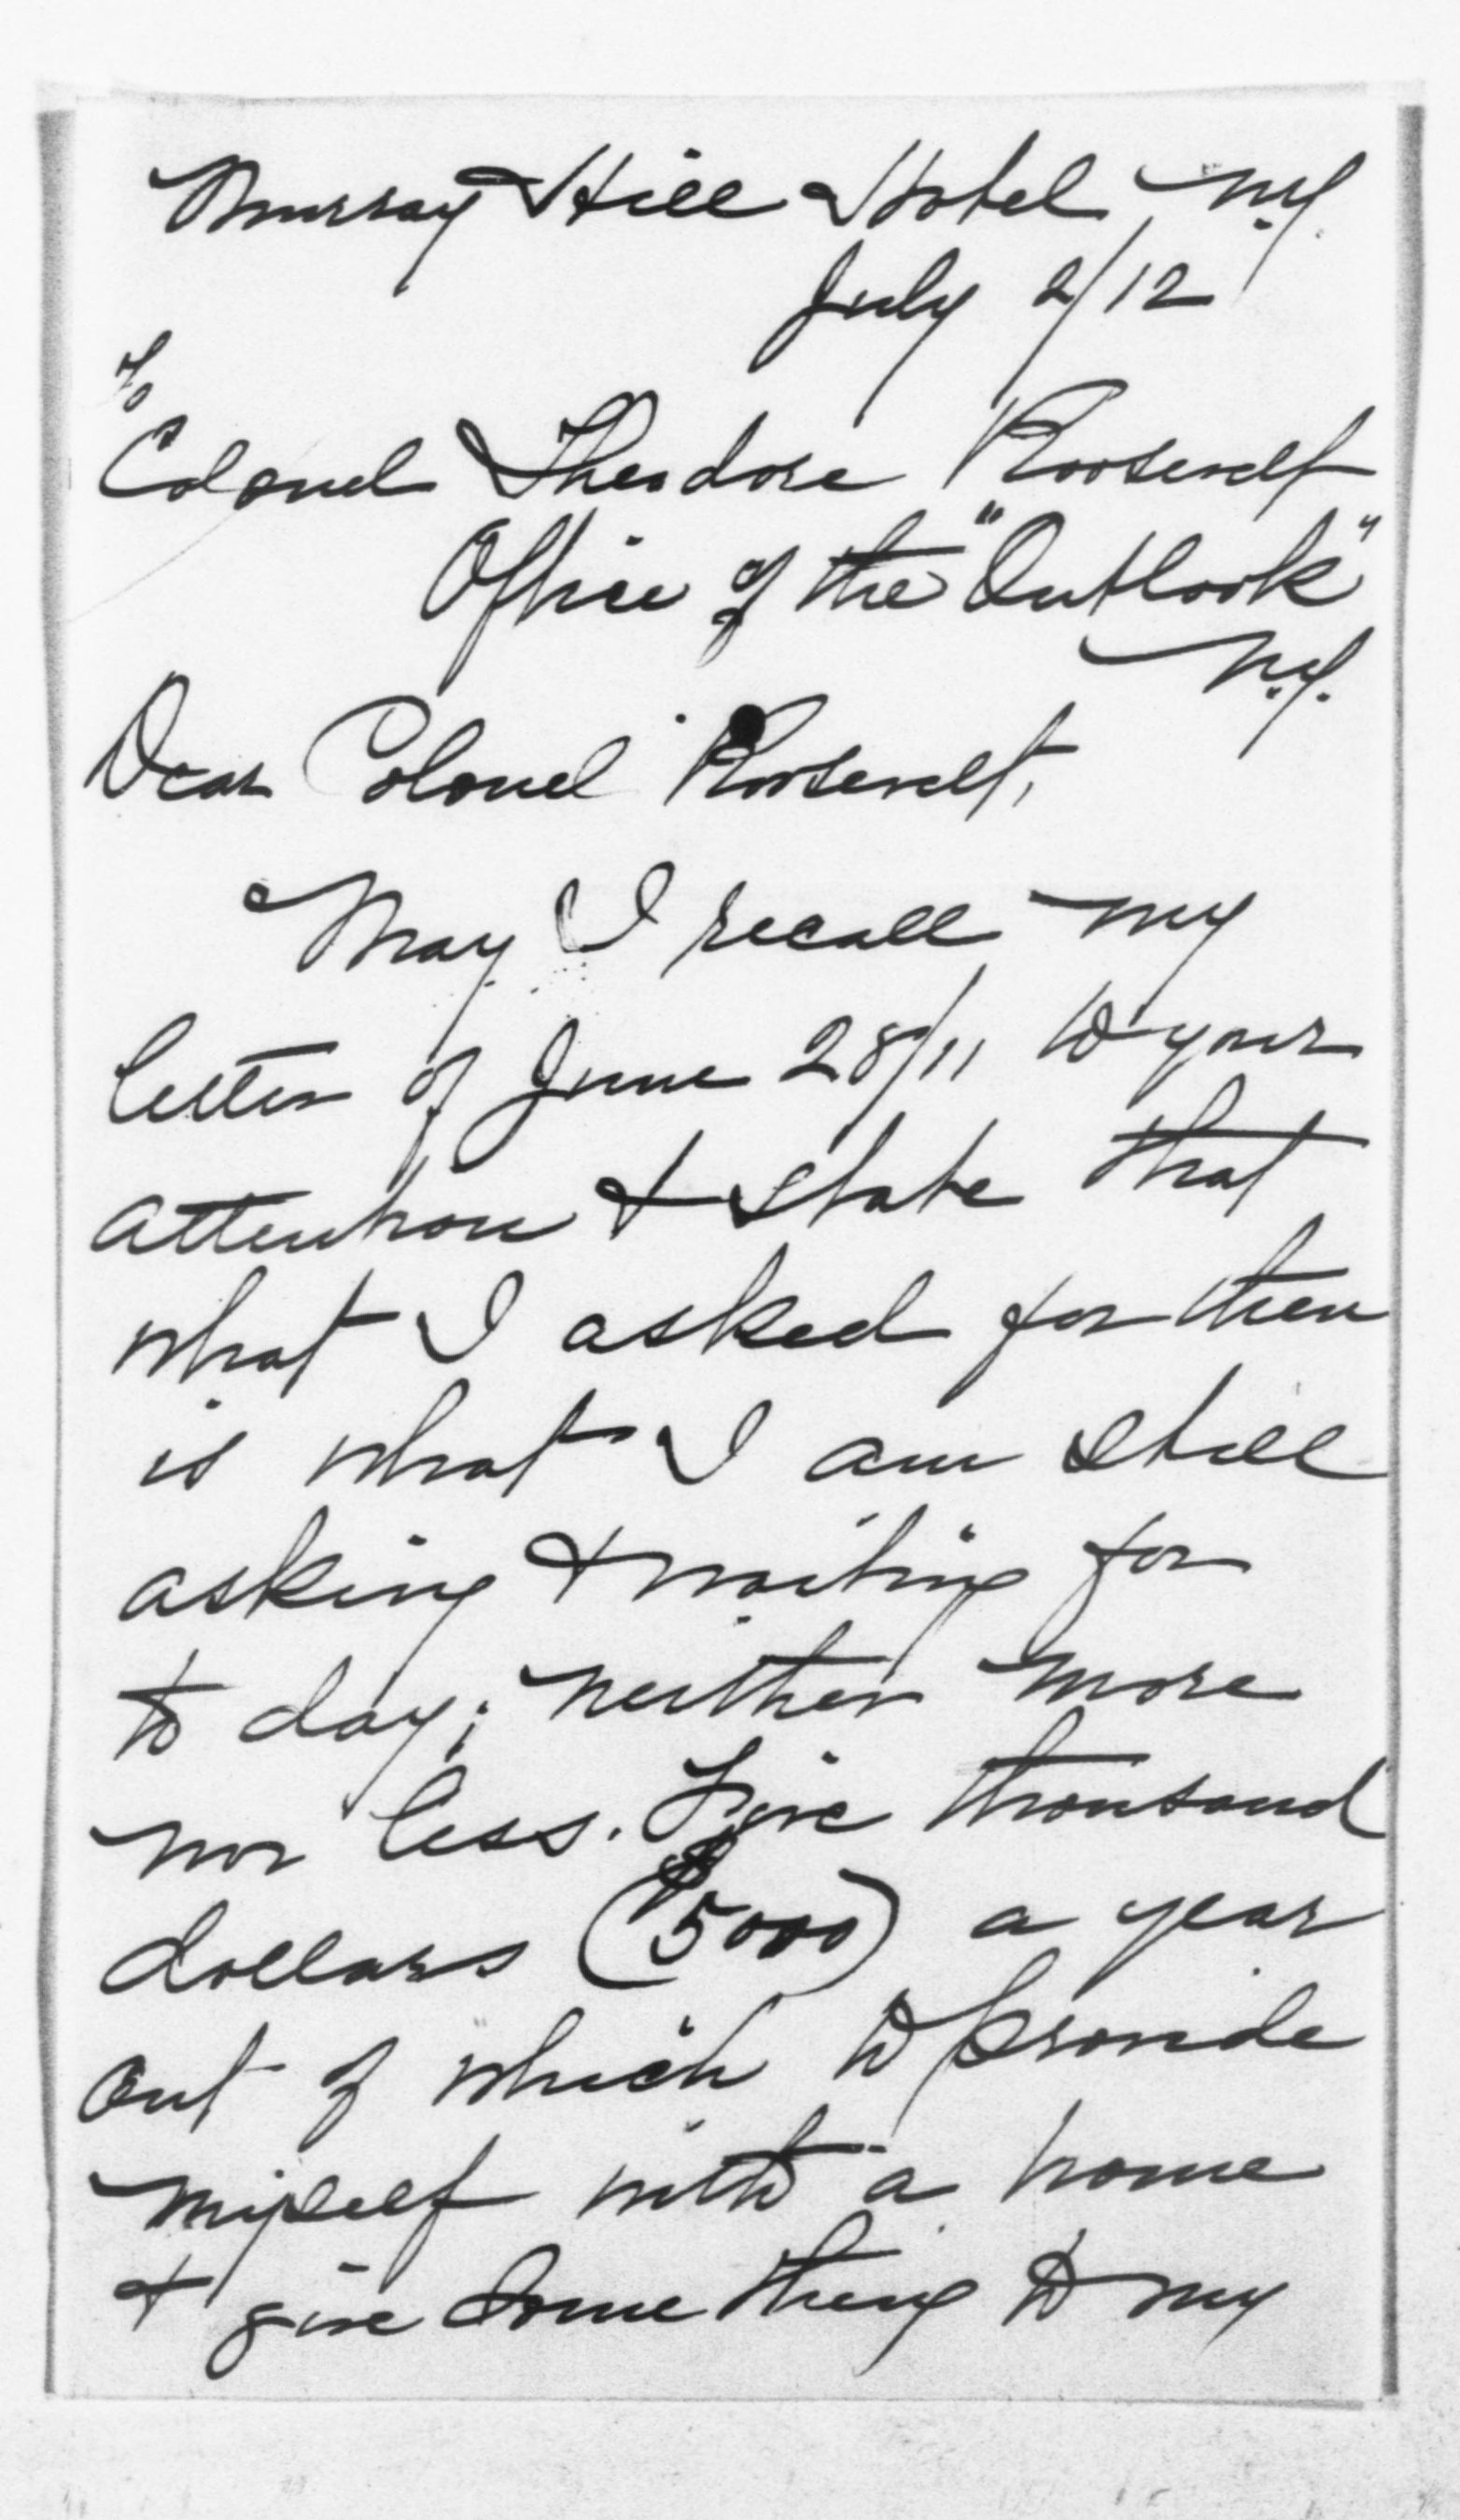 Murray Hill Hotel N.Y.
July 2/12
To
Colonel Theodore Roosevelt
Office of the "Outlook"
N.Y.
Dear Colonel Roosevelt,
May I recall my
letter of June 28/11 to your
attention & state that
what I asked for then
is what I am still
asking & waiting for
to day; neither more
nor less. Five thousand
dollars ($5000) a year
out of which to provide
myself with a home
& give some thing to my